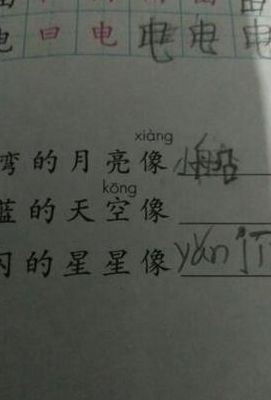 电 日 电 电 电 电
xiàng
弯的月亮像小船
kōng
蓝的天空像
闪的星星像yǎn jīng